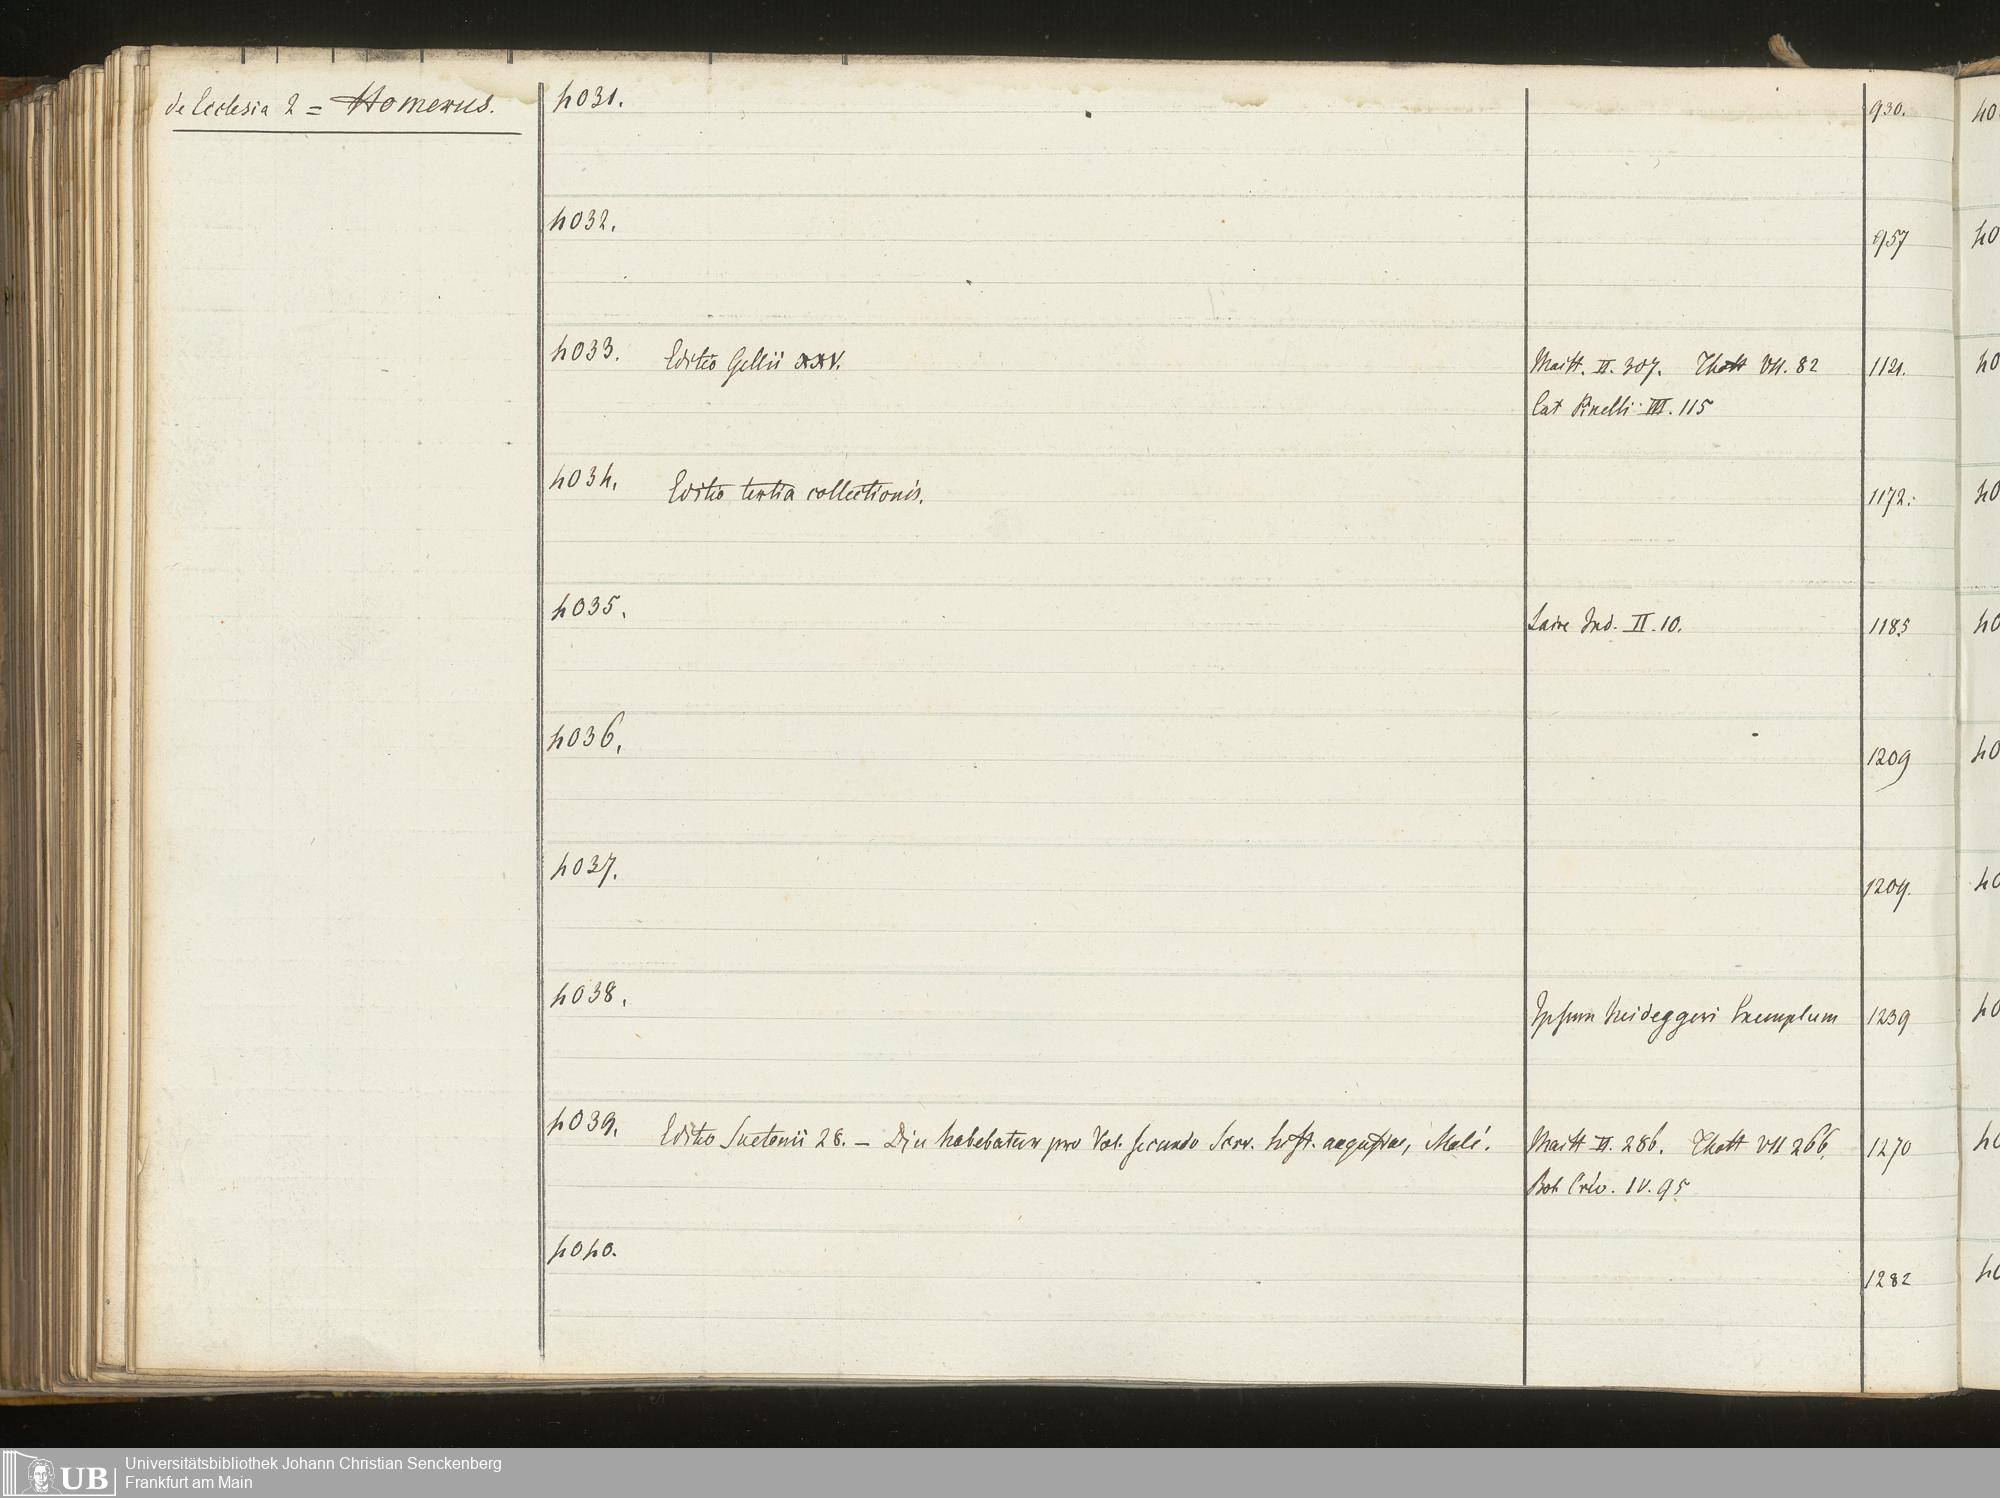 de Ecclesia 2 = Homerus.
4031. 930.
4032. 957
4033. Editio Gellii XXV. Maitt. II. 307. Thott VII. 82 1121.
Cat Pinelli III. 115
4034. Editio tertia collectionis. 1172.
4035. Laire Ind. II. 10. 1185
4036. 1209
4037. 1209.
4038. Ipsum Heideggeri Exemplum 1239
4039. Editio Suetonii 28. — Diu habebatur pro Vol. secundo Scrr. hist. augustae, Male. Maitt II. 286. Thott VII 266. 1270
IV. 95
4040. 1282
40
40
40
40
40
40
40
40
40
40
Universitätsbibliothek Johann Christian Senckenberg
Frankfurt am Main
UB